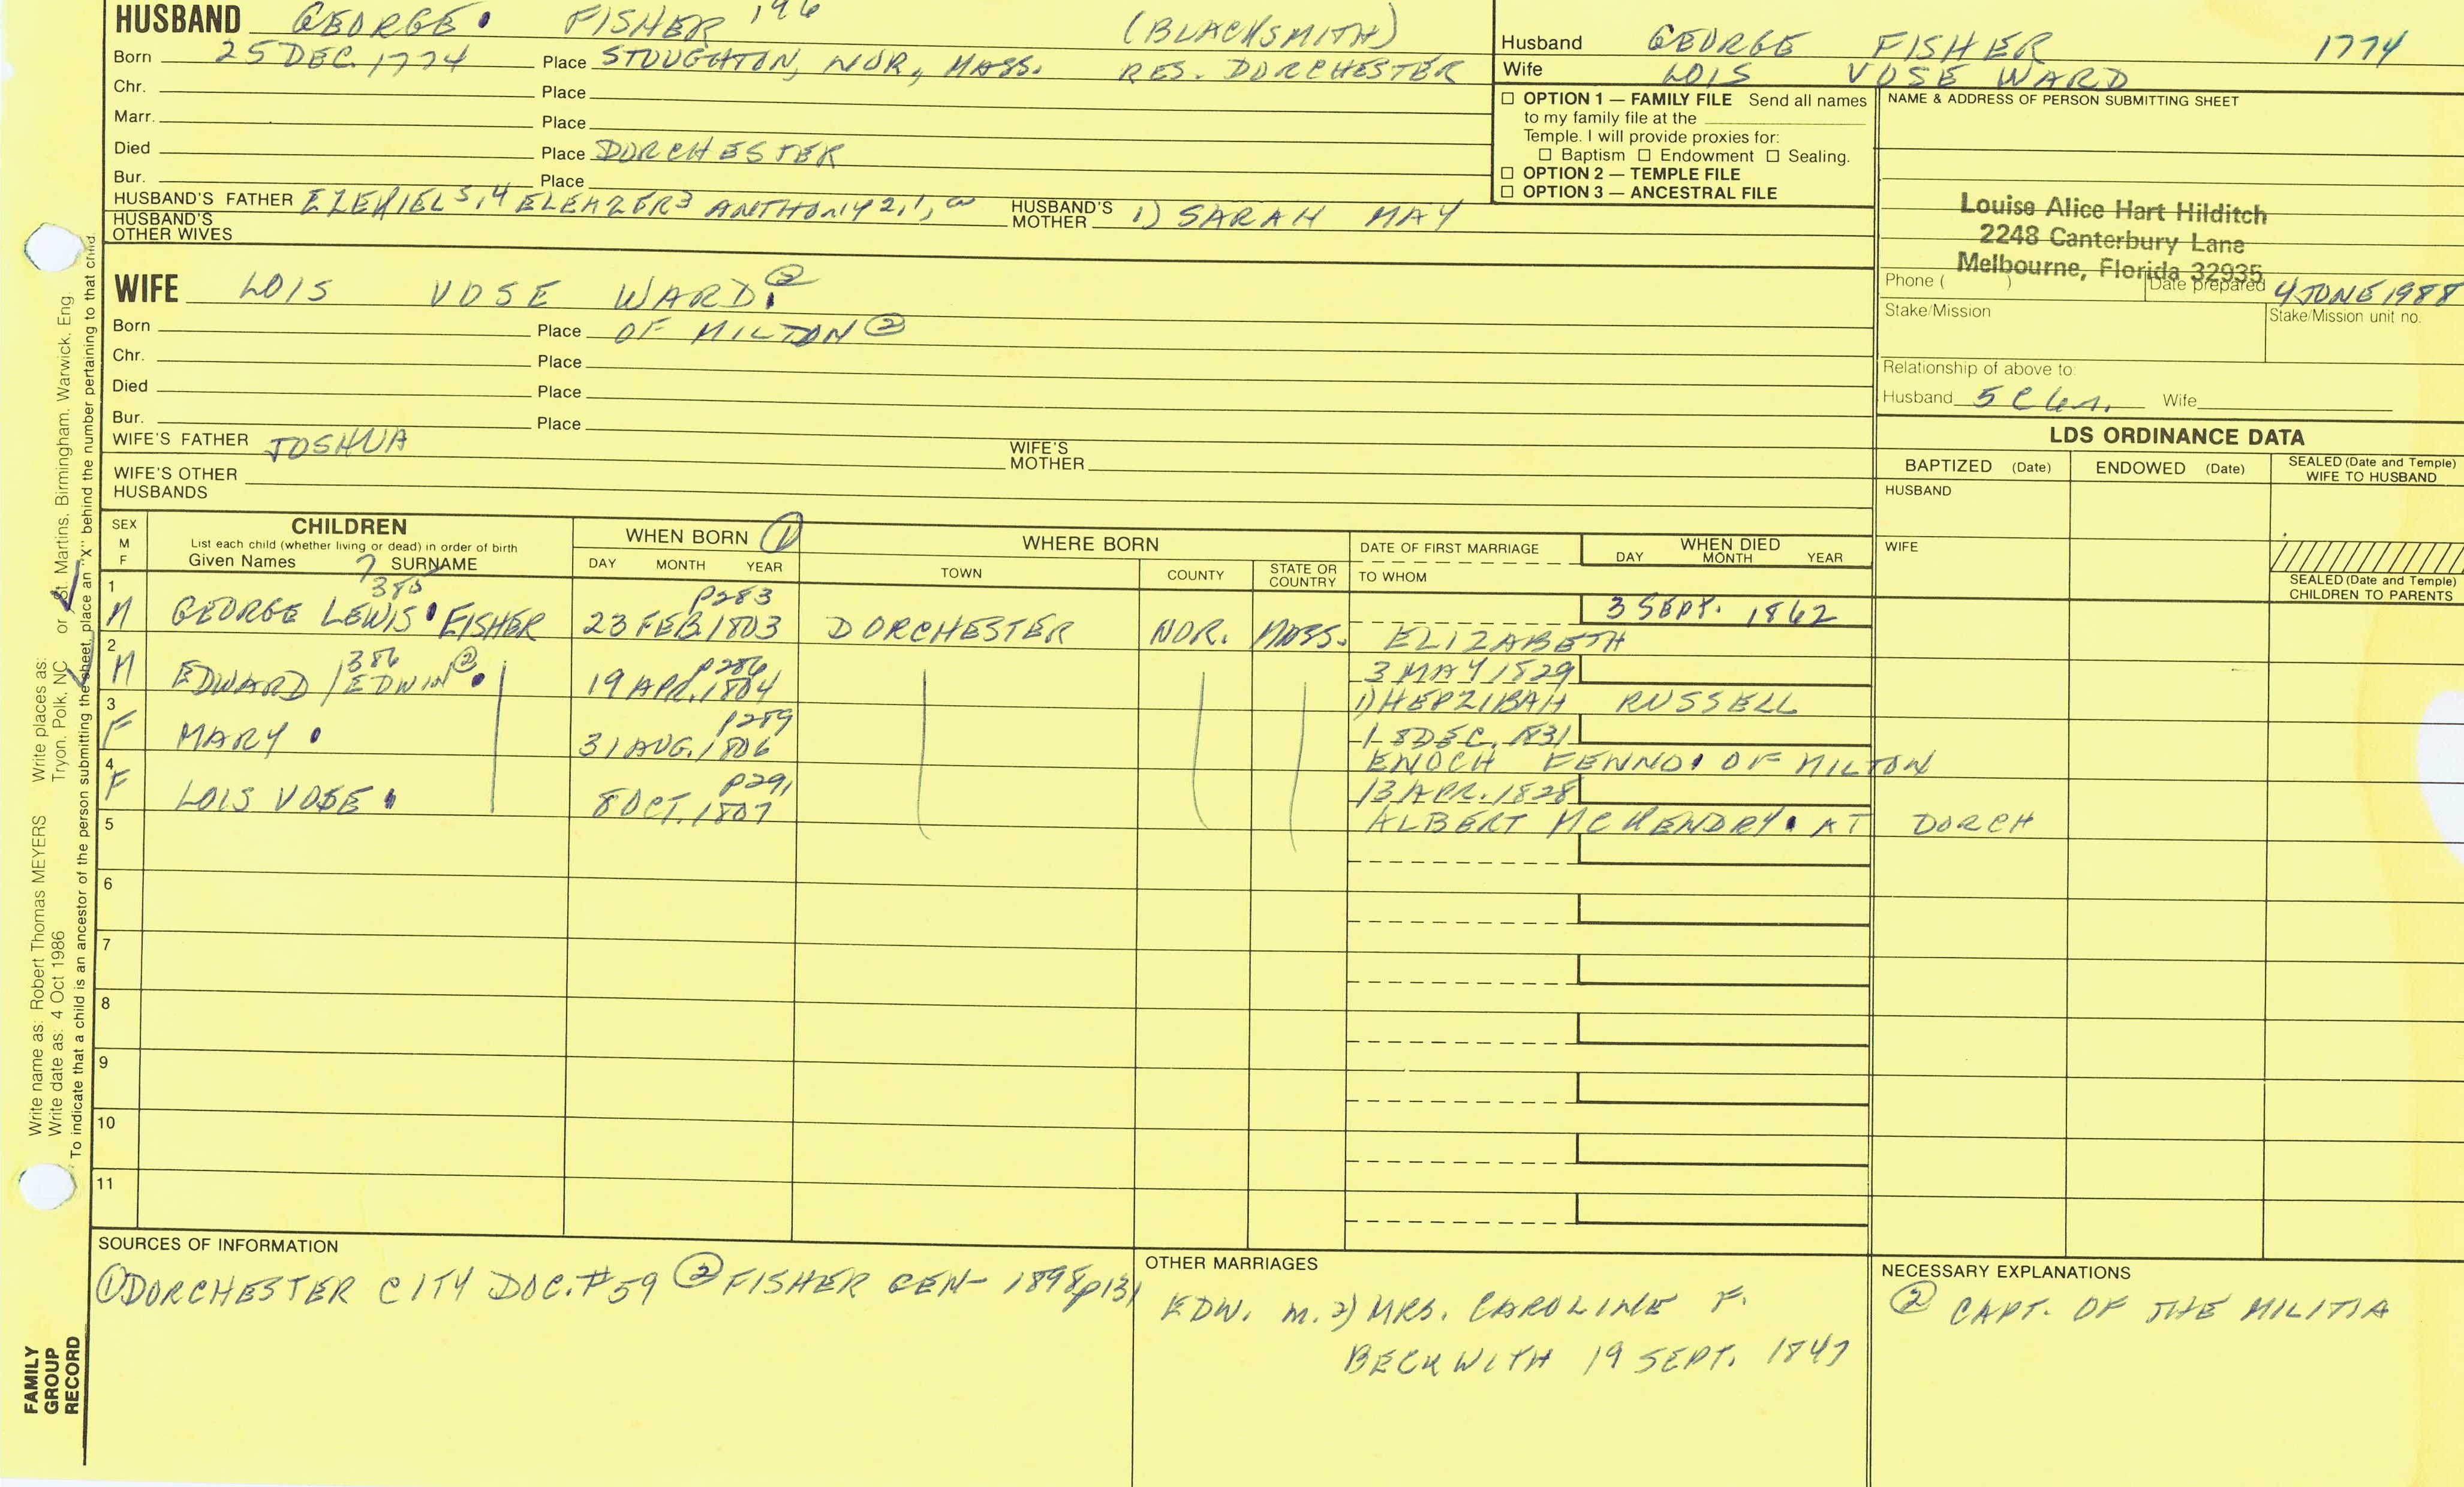 HUSBAND GEORGE. FISHER 196 (BLACKSMITH)
Born 25 DEC. 1774 Place STOUGHTON, NOR, MASS. RES. DORCHESTER
Chr. Place
Marr. Place
Died Place DORCHESTER
Bur. Place
HUSBAND'S FATHER EZEKIEL 5,4 ELEAZER3 ANTHONY 2,1, HUSBAND'S MOTHER 1) SARAH MAY
HUSBAND'S OTHER WIVES
Husband GEORGE FISHER 1774
Wife LOIS VOSE WARD
☐ OPTION 1 — FAMILY FILE Send all names
to my family file at the
Temple. I will provide proxies for:
☐ Baptism ☐ Endowment ☐ Sealing.
☐ OPTION 2 — TEMPLE FILE
☐ OPTION 3 — ANCESTRAL FILE
NAME & ADDRESS OF PERSON SUBMITTING SHEET
Louise Alice Hart Hilditch
2248 Canterbury Lane
Melbourne, Florida 32935
Phone ( ) Date prepared 4 JUNE 1988
Stake/Mission Stake/Mission unit no.
Relationship of above to:
Husband 5C Wife
WIFE LOIS VOSE WARD. ②
Born Place OF MILTON ②
Chr. Place
Died Place
Bur. Place
WIFE'S FATHER JOSHUA WIFE'S MOTHER
WIFE'S OTHER HUSBANDS
LDS ORDINANCE DATA
BAPTIZED (Date) ENDOWED (Date) SEALED (Date and Temple) WIFE TO HUSBAND
HUSBAND
WIFE
SEALED (Date and Temple) CHILDREN TO PARENTS
SEX M F
CHILDREN
List each child (whether living or dead) in order of birth
Given Names SURNAME 7
WHEN BORN ①
DAY MONTH YEAR
WHERE BORN
TOWN COUNTY STATE OR COUNTRY
DATE OF FIRST MARRIAGE
TO WHOM
WHEN DIED
DAY MONTH YEAR
1 385 P283 3 SEPT. 1862
M GEORGE LEWIS. FISHER 23 FEB. 1803 DORCHESTER NOR. MASS. ELIZABETH
2 386 ② P286 3 MAY 1829
M EDWARD / EDWIN. 19 APR. 1804 1) HEPZIBAH RUSSELL
3 P289 18 DEC. 1831
F MARY. 31 AUG. 1806 ENOCH FENNO. OF MILTON
4 P291 13 APR. 1828
F LOIS VOSE. 8 OCT. 1807 ALBERT MCKENDRY. AT DORCH
5
6
7
8
9
10
11
SOURCES OF INFORMATION
①DORCHESTER CITY DOC. #59 ② FISHER GEN- 1898 p131
OTHER MARRIAGES
EDW. M. 2) MRS. CAROLINE F.
BECKWITH 19 SEPT. 1847
NECESSARY EXPLANATIONS
② CAPT. OF THE MILITIA
FAMILY
GROUP
RECORD
Write name as: Robert Thomas MEYERS Write places as: Tryon, Polk, NC or St. Martins, Birmingham, Warwick, Eng.
Write date as: 4 Oct 1986
To indicate that a child is an ancestor of the person submitting the sheet, place an "X" behind the number pertaining to that child.